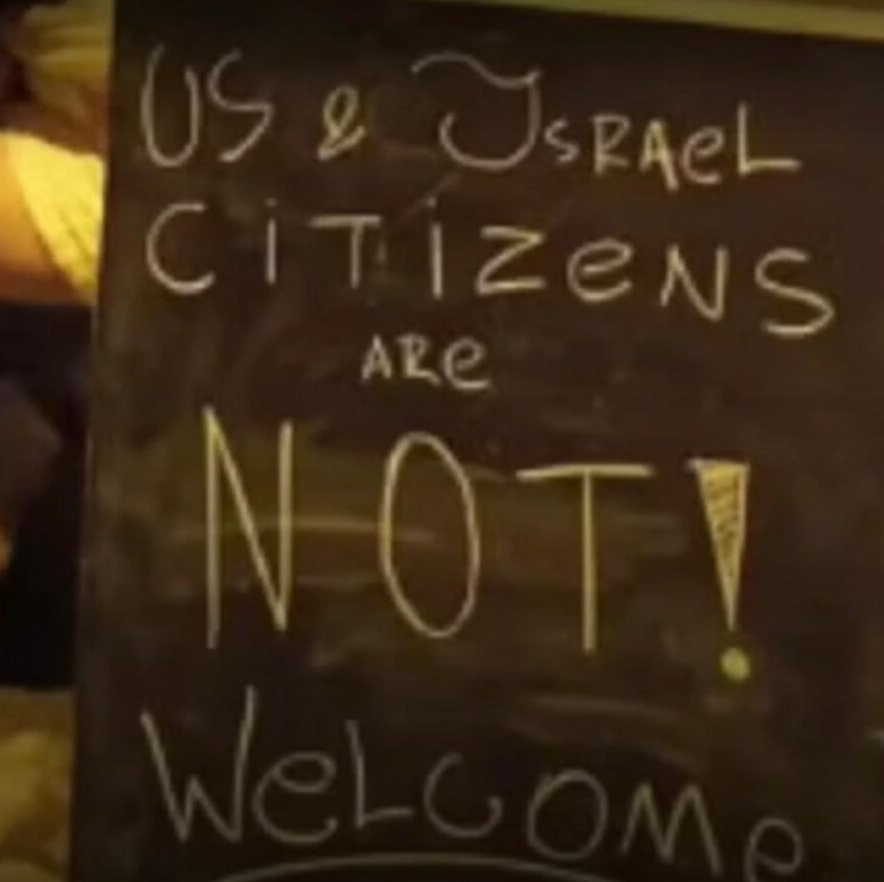 US & ISRAeL
CiTiZeNS
ARe
NOT!
WeLCOMe